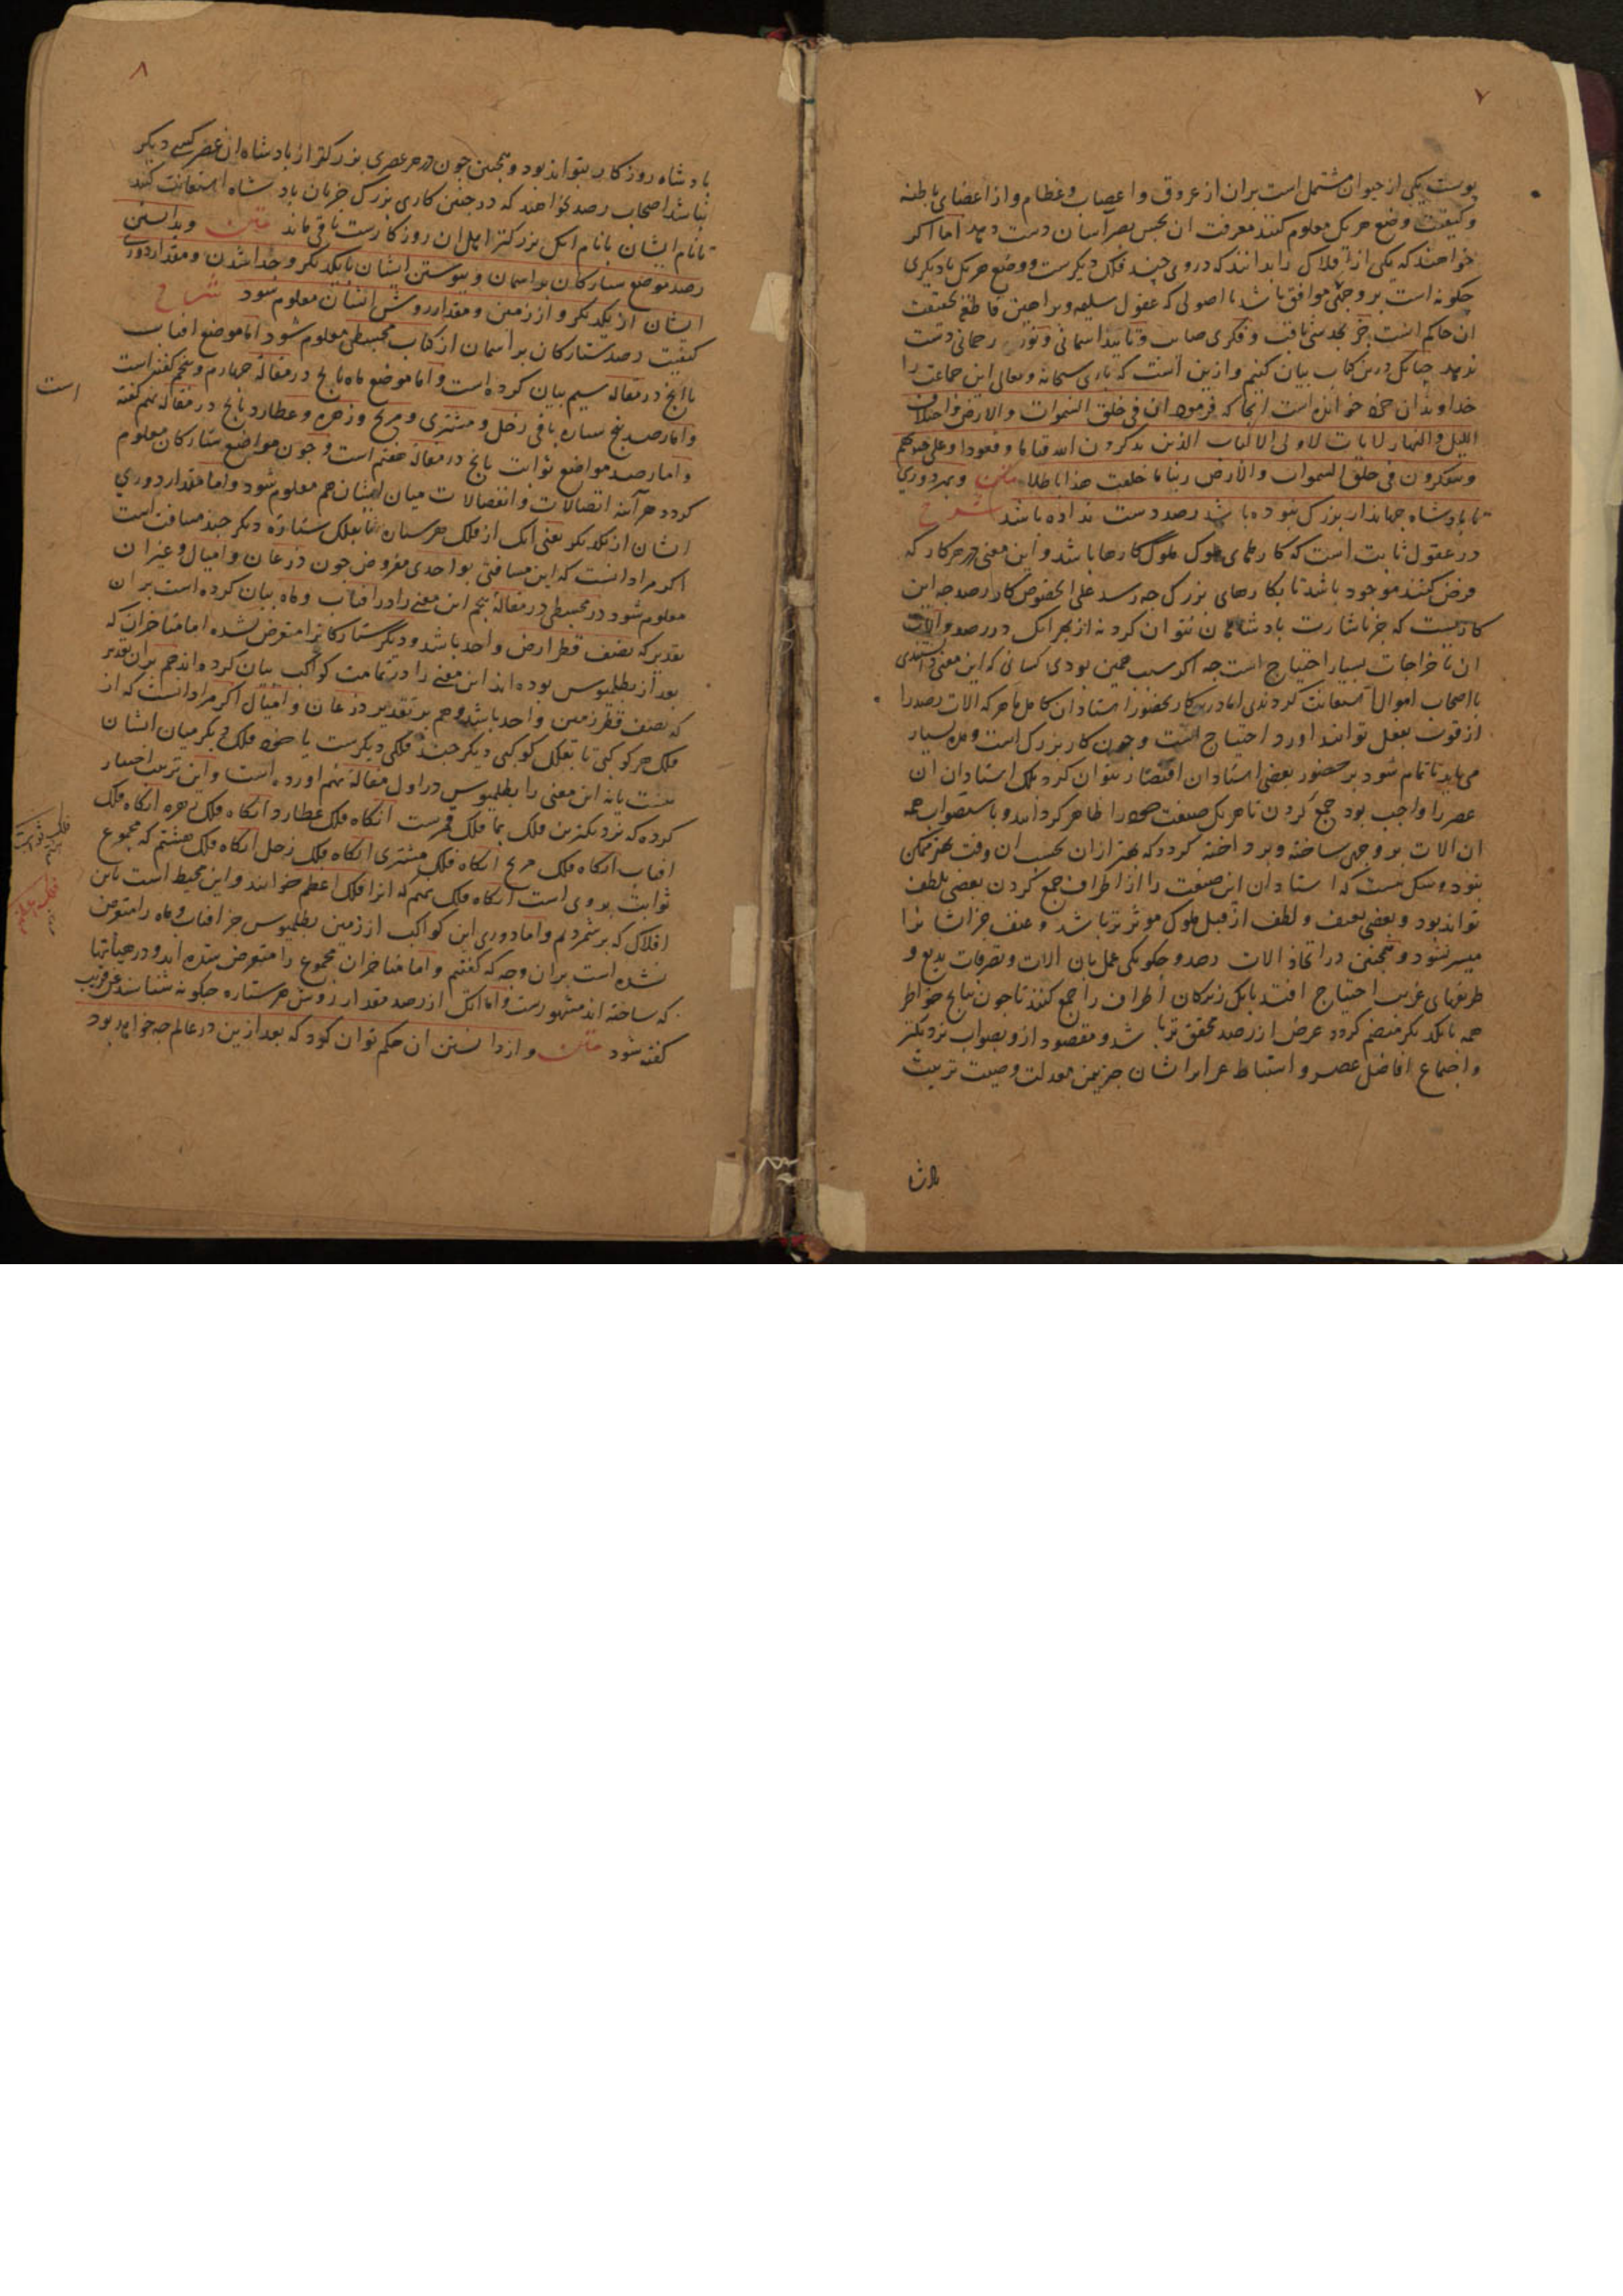 ۷
پوست یکی از حیوان مشتمل است بران از عروق و اعصاب و عظام و از اعضای باطنه
و کیفیت وضع هر یک معلوم کنند معرفت ان بحس بصر آسان دست دهد اما اگر
خواهند که یکی از افلاک را بدانند که در وی چند فلک دیگرست و وضع هر یک با دیگری
چگونه است بر وجهی موافق باشد با اصولی که عقول سلیمه و براهین قاطع بحقیقت
ان حاکم است جز بحدسی ثاقب و فکری صائب و تایید اسمانی و رحمانی دست
ندهد چنانک درین کتاب بیان کنیم و ازین است که باری سبحانه و تعالی این جماعت را
خداوندان خرد خوانده است انجا که فرمود ان فی خلق السموات والارض واختلاف
اللیل والنهار لایات لاولی الالباب الذین یذکرون الله قیاما وقعودا وعلی جنوبهم
ویتفکرون فی خلق السموات والارض ربنا ما خلقت هذا باطلا متن و بهر دوری
تا بادشاه جهاندار بزرگ نبوده باشد رصد دست نداده باشد شرح
در عقول ثابت است که کارهای ملوک ملوک کارها باشد و این معنی در هر کار که
فرض کنند موجود باشد تا بکارهای بزرگ چه رسد علی الخصوص کار رصد چه این
کاریست که جز باشارت بادشاهان نتوان کرد نه از بهر انک در رصد و الات
ان باخراجات بسیار احتیاج است چه اگر سبب همین بودی کسانی که این معنی دانستندی
باصحاب اموال استعانت کردندی اما درین کار بحضور استادان کامل ماهر که الات رصد را
از قوت بفعل توانند اورد احتیاج است و چون کار بزرگ است و مدت بسیار
می باید تا تمام شود بر حضور بعضی استادان اقتصار نتوان کرد بلک استادان ان
عصر را واجب بود جمع کردن تا هر یک صنعت خود را ظاهر گردانند و باستصواب همه
ان الات بر وجهی ساخته و پرداخته گردد که بهتر ازان بحسب ان وقت ممکن
نبود و شک نیست که استادان این صنعت را از اطراف جمع کردن بعضی بلطف
تواند بود و بعضی بعنف و لطف از قبل ملوک موثرتر باشد و عنف جز ایشانرا
میسر نشود و همچنین در اتخاذ الات رصد و چگونگی عمل بان الات و تصرفات بدیع و
طریقهای غریب احتیاج افتد بانک زیرکان اطراف را جمع کنند تا چون نتایج خواطر
همه بایکدیگر منضم گردد غرض از رصد محقق تر باشد و مقصود ازو بصواب نزدیکتر
و اجتماع افاضل عصر و استنباط غرایب ایشان جز بیمن معدلت و صیت تربیت
بادشاه
۸
بادشاه روزگار نتواند بود و همچنین چون در هر عصری بزرگتر از بادشاه ان عصر کسی دیگر
نباشد اصحاب رصد خواهند که در چنین کاری بزرگ جز بان بادشاه استعانت نکنند
تا نام ایشان با نام انکس بزرگتر اهل ان روزگارست باقی ماند متن و بدانستن
رصد موضع ستارکان بر اسمان و پیوستن ایشان بایکدیگر و جدا شدن و مقدار دوری
ایشان از یکدیگر و از زمین و مقدار روش ایشان معلوم شود شرح
کیفیت رصد ستارکان بر اسمان از کتاب مجسطی معلوم شود اما موضع افتاب
بانج در مقاله سیم بیان کرده است و اما موضع ماه بانج در مقاله چهارم و پنجم گفته است
است
و اما رصد پنج ستاره باقی زحل و مشتری و مریخ و زهره و عطارد بانج در مقاله نهم گفته
و اما رصد مواضع ثوابت بانج در مقاله هفتم است و چون مواضع ستارکان معلوم
گردد هر آینه اتصالات و انفصالات میان ایشان هم معلوم شود و اما مقدار دوری
ایشان از یکدیگر یعنی انک از فلک هر ستاره تا بفلک ستاره دیگر چند مسافت است
اگر مراد انست که این مسافتی بواحدی مفروض چون ذرعان و امیال و غیر ان
معلوم شود در مجسطی در مقاله پنجم این معنی را در افتاب و ماه بیان کرده است بر ان
تقدیر که نصف قطر ارض واحد باشد و دیگر ستارکانرا متعرض نشده اما متاخران که
بعد از بطلمیوس بوده اند این معنی را در تمامت کواکب بیان کرده اند هم بران تقدیر
که نصف قطر زمین واحد باشد و هم بر تقدیر ذرعان و امیال اگر مراد انست که از
فلک هر کوکبی تا بفلک کوکبی دیگر چند فلکی دیگرست یا خود فلکی دیگر میان ایشان
نیست یا نه این معنی را بطلمیوس در اول مقاله نهم اورده است و این ترتیب اختیار
کرده که نزدیکترین فلک بما فلک قمرست انگاه فلک عطارد انگاه فلک زهره انگاه فلک
افتاب انگاه فلک مریخ انگاه فلک مشتری انگاه فلک زحل انگاه فلک هشتم که مجموع
ثوابت بر وی است انگاه فلک نهم که انرا فلک اعظم خوانند و این محیط است باین
افلاک که برشمردم و اما دوری این کواکب از زمین بطلمیوس جز افتاب و ماه را متعرض
نشده است بران وجه که گفتیم و اما متاخران مجموع را متعرض شده اند و در هیأتها
که ساخته اند مشهورست و اما انک از رصد مقدار روش هر ستاره چگونه شناسند عن قریب
گفته شود متن و از دانستن ان حکم توان کرد که بعد ازین در عالم چه خواهد بود